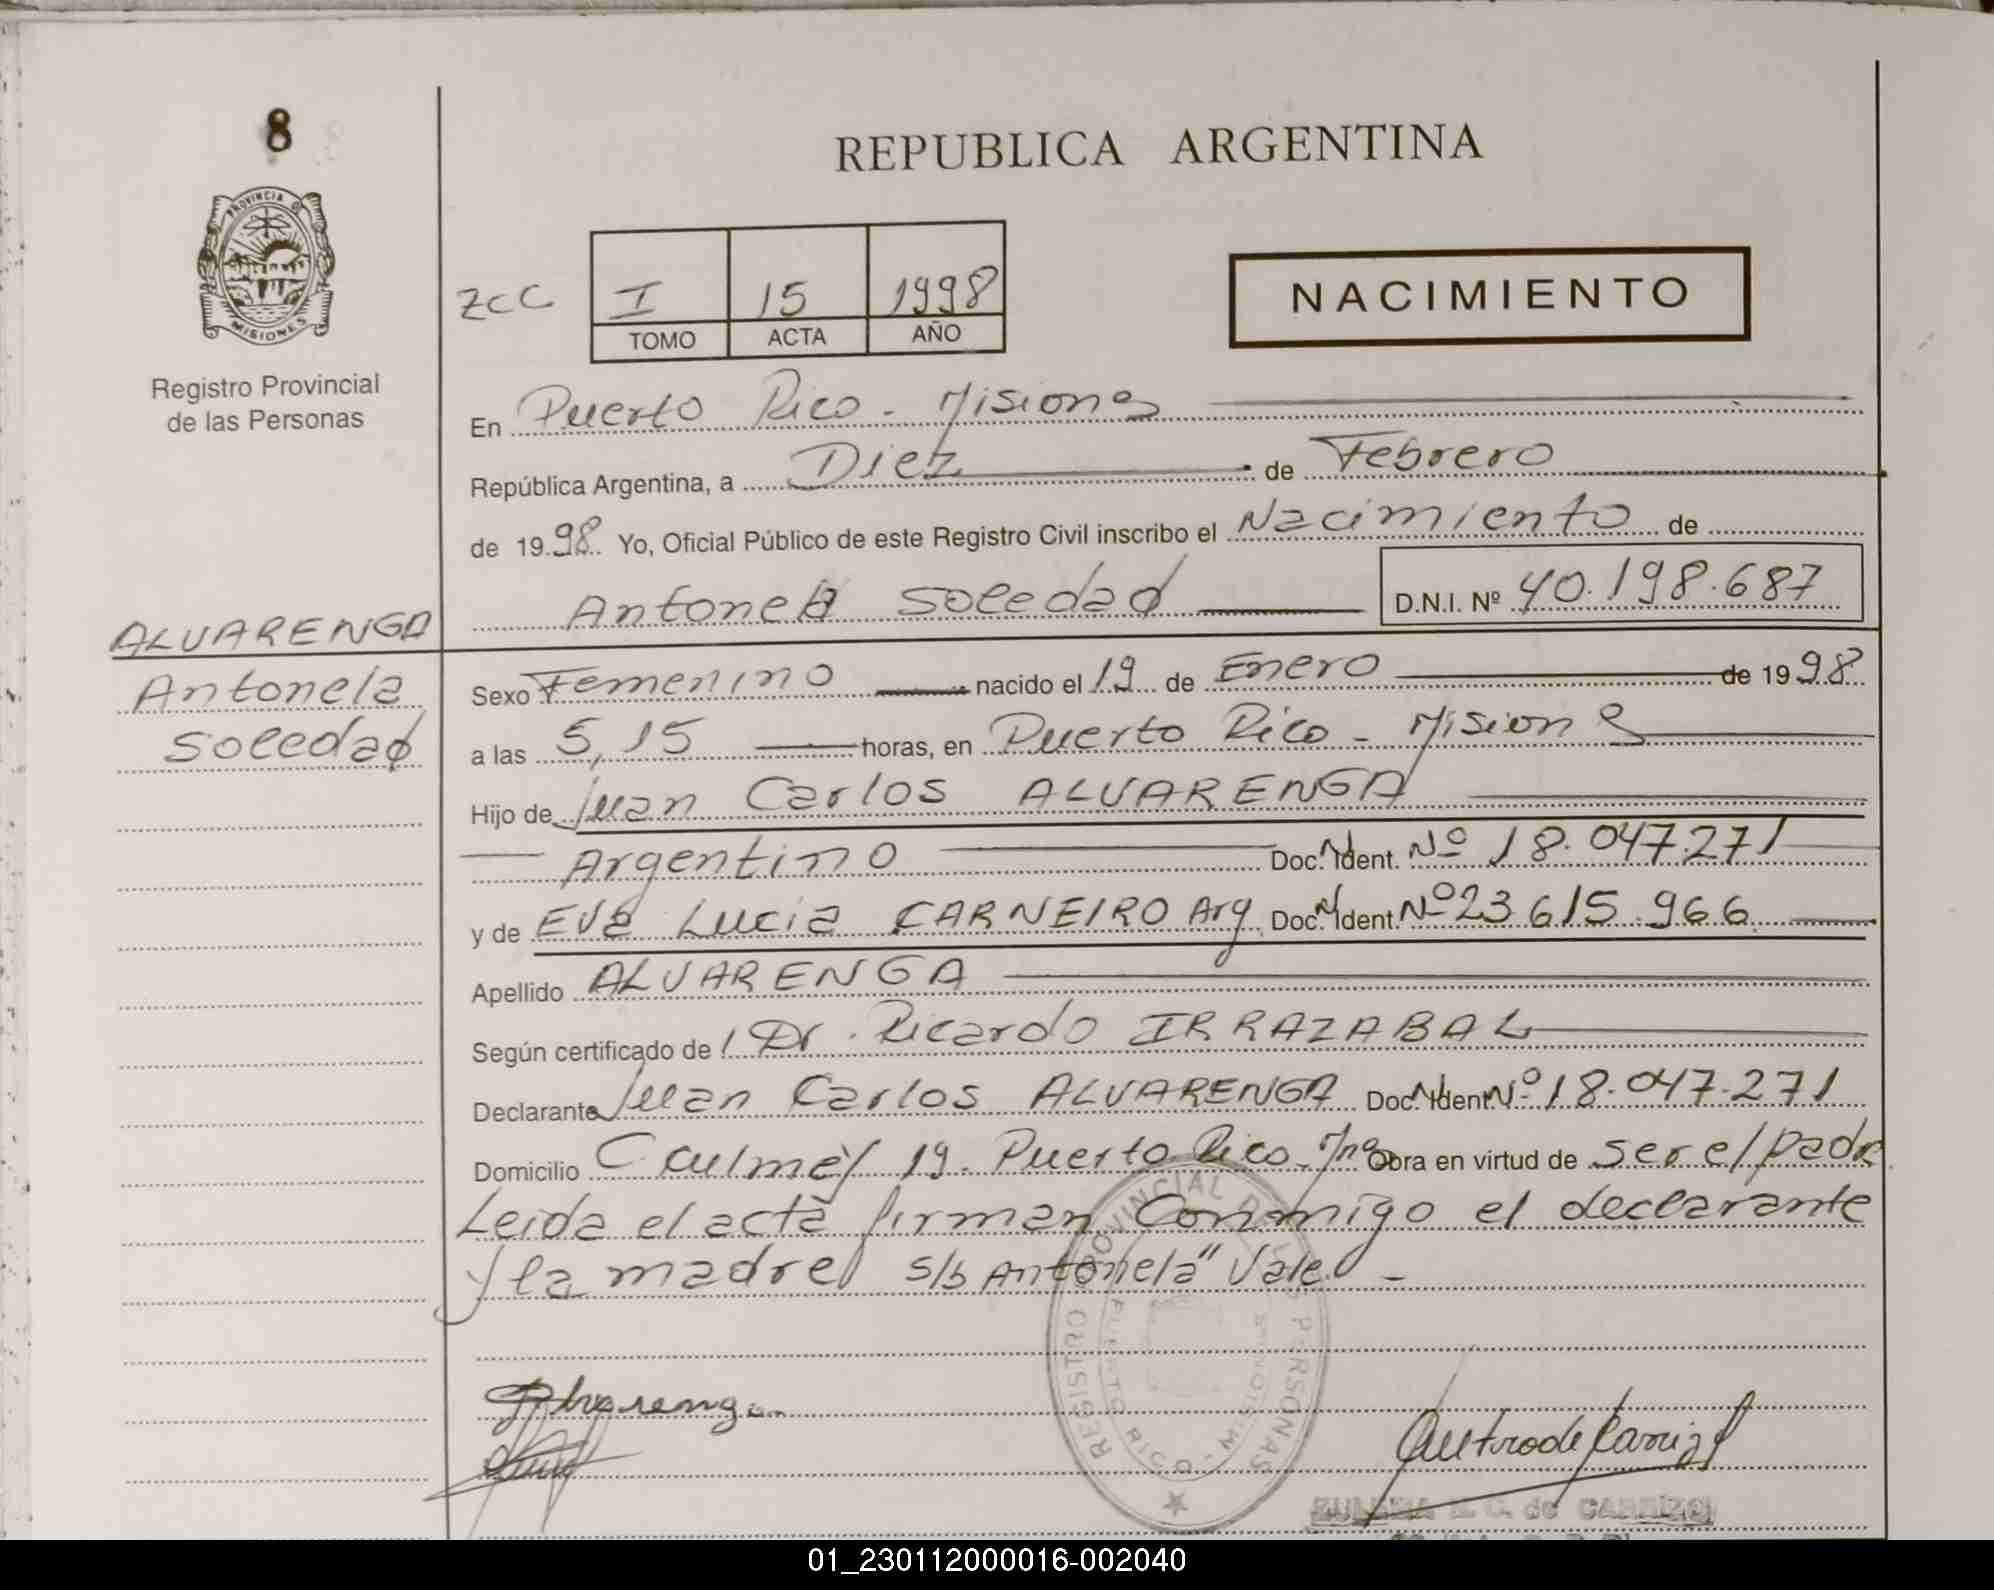 8
PROVINCIA DE
MISIONES
Registro Provincial
de las Personas
REPUBLICA ARGENTINA
ZCC
I 15 1998
TOMO ACTA AÑO
NACIMIENTO
En Puerto Rico - Misiones
República Argentina, a Diez de Febrero
de 1998 Yo, Oficial Público de este Registro Civil inscribo el Nacimiento de
Antonela Soledad D.N.I. Nº 40.198.687
ALVARENGA
Antonela
Soledad
Sexo Femenino nacido el 19 de Enero de 1998
a las 5,15 horas, en Puerto Rico - Misiones
Hijo de Juan Carlos ALVARENGA
Argentino Doc. Ident. Nº 18.047.271
y de Eva Lucia CARNEIRO Arg Doc. Ident. Nº 23.615.966
Apellido ALVARENGA
Según certificado de Dr. Ricardo IRRAZABAL
Declarante Juan Carlos ALVARENGA Doc. Ident. Nº 18.047.271
Domicilio C. Culmey 19. Puerto Rico - Mnes Obra en virtud de ser el padre
Leida el acta firman Conmigo el declarante
y la madre s/b Antonela" Vale. -
REGISTRO PROVINCIAL DE LAS PERSONAS
PUERTO RICO - MISIONES
Alvarenga
ZULEMA E. C. de CARRIZO
01_230112000016-002040